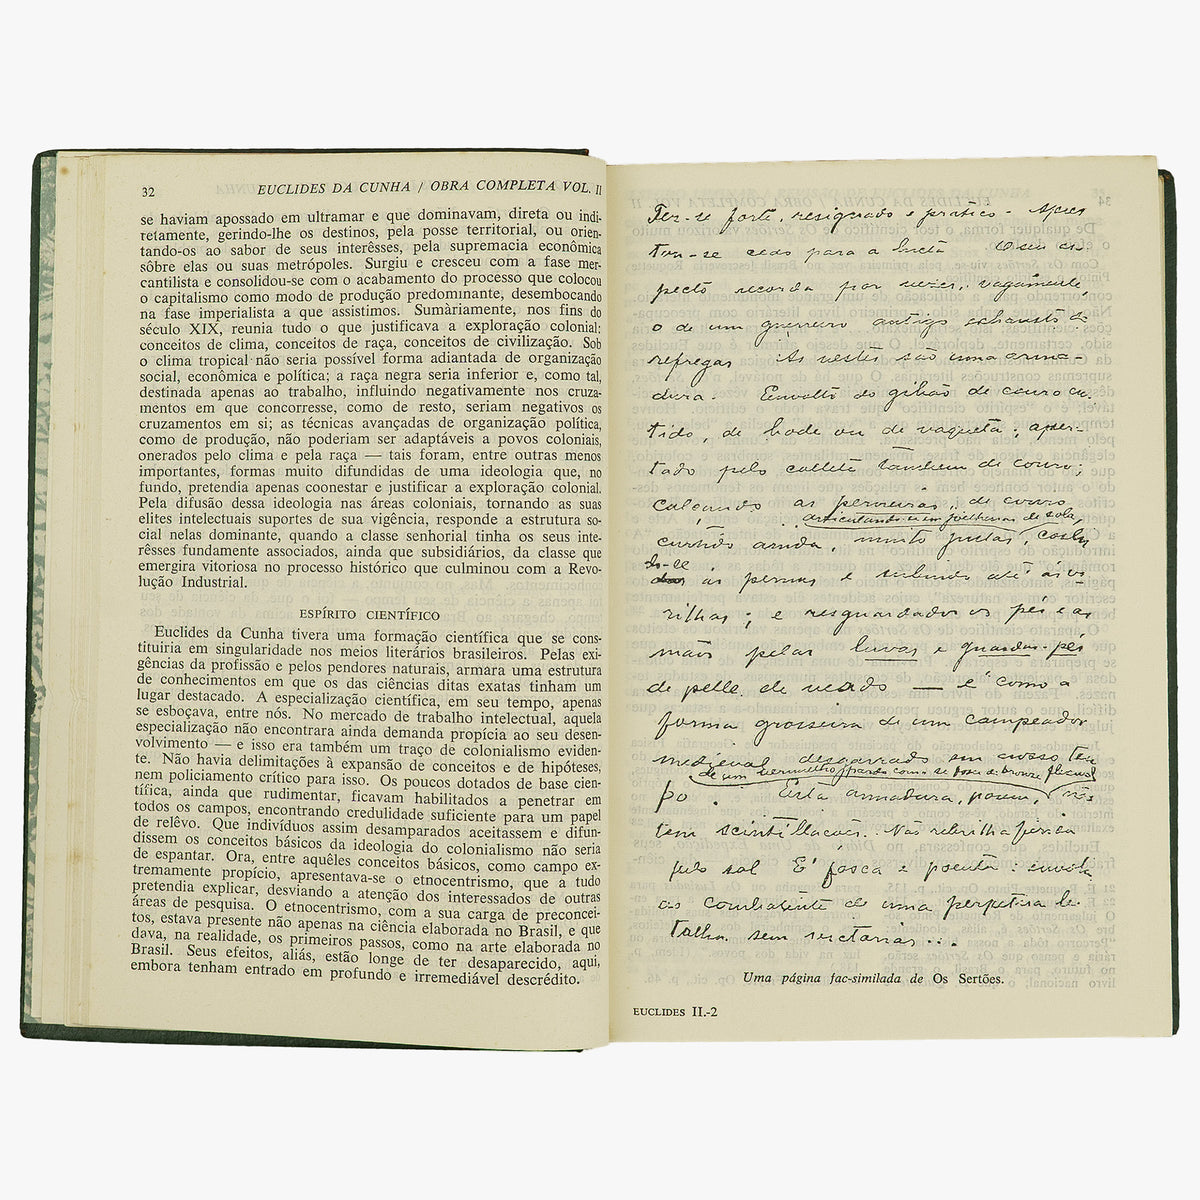 32
EUCLIDES DA CUNHA / OBRA COMPLETA VOL. II
se haviam apossado em ultramar e que dominavam, direta ou indi-
retamente, gerindo-lhe os destinos, pela posse territorial, ou orien-
tando-os ao sabor de seus interêsses, pela supremacia econômica
sôbre elas ou suas metrópoles. Surgiu e cresceu com a fase mer-
cantilista e consolidou-se com o acabamento do processo que colocou
o capitalismo como modo de produção predominante, desembocando
na fase imperialista a que assistimos. Sumàriamente, nos fins do
século XIX, reunia tudo o que justificava a exploração colonial:
conceitos de clima, conceitos de raça, conceitos de civilização. Sob
o clima tropical não seria possível forma adiantada de organização
social, econômica e política; a raça negra seria inferior e, como tal,
destinada apenas ao trabalho, influindo negativamente nos cruza-
mentos em que concorresse, como de resto, seriam negativos os
cruzamentos em si; as técnicas avançadas de organização política,
como de produção, não poderiam ser adaptáveis a povos coloniais,
onerados pelo clima e pela raça — tais foram, entre outras menos
importantes, formas muito difundidas de uma ideologia que, no
fundo, pretendia apenas coonestar e justificar a exploração colonial.
Pela difusão dessa ideologia nas áreas coloniais, tornando as suas
elites intelectuais suportes de sua vigência, responde a estrutura so-
cial nelas dominante, quando a classe senhorial tinha os seus inte-
rêsses fundamente associados, ainda que subsidiários, da classe que
emergira vitoriosa no processo histórico que culminou com a Revo-
lução Industrial.
ESPÍRITO CIENTÍFICO
Euclides da Cunha tivera uma formação científica que se cons-
tituiria em singularidade nos meios literários brasileiros. Pelas exi-
gências da profissão e pelos pendores naturais, armara uma estrutura
de conhecimentos em que os das ciências ditas exatas tinham um
lugar destacado. A especialização científica, em seu tempo, apenas
se esboçava, entre nós. No mercado de trabalho intelectual, aquela
especialização não encontrara ainda demanda propícia ao seu desen-
volvimento — e isso era também um traço de colonialismo eviden-
te. Não havia delimitações à expansão de conceitos e de hipóteses,
nem policiamento crítico para isso. Os poucos dotados de base cien-
tífica, ainda que rudimentar, ficavam habilitados a penetrar em
todos os campos, encontrando credulidade suficiente para um papel
de relêvo. Que indivíduos assim desamparados aceitassem e difun-
dissem os conceitos básicos da ideologia do colonialismo não seria
de espantar. Ora, entre aquêles conceitos básicos, como campo ex-
tremamente propício, apresentava-se o etnocentrismo, que a tudo
pretendia explicar, desviando a atenção dos interessados de outras
áreas de pesquisa. O etnocentrismo, com a sua carga de preconcei-
tos, estava presente não apenas na ciência elaborada no Brasil, e que
dava, na realidade, os primeiros passos, como na arte elaborada no
Brasil. Seus efeitos, aliás, estão longe de ter desaparecido, aqui,
embora tenham entrado em profundo e irremediável descrédito.
Fez-se forte, resignado e pratico. Apres
tou-se cedo para a lucta. O seu as-
pecto recorda por vezes, vagamente,
o de um guerreiro antigo exhausto da
refrega. As vestes são uma arma-
dura. Envolto do gibão de couro cur
tido, de bode ou de vaqueta; aper-
tado pelo collete tambem de couro;
calçando as perneiras, de couro
articulando-se em joelheiras de sola,
curtido ainda, muito justas, cosi
das-se ás pernas e subindo até ás vi-
rilhas; e resguardados os pés e as
mãos pelas luvas e guarda-pés
de pelle de veado — é como a
forma grosseira de um campeador
medieval desgarrado em nosso tem
de um vermelho pardo como se fosse de bronze flexivel
po. Esta armadura, porem, não
tem scintillações. Não rebrilha ferida
pelo sol. É fosca e poenta: envolve
ao combatente de uma
talha sem victorias...
Uma página fac-similada de Os Sertões.
EUCLIDES II.-2